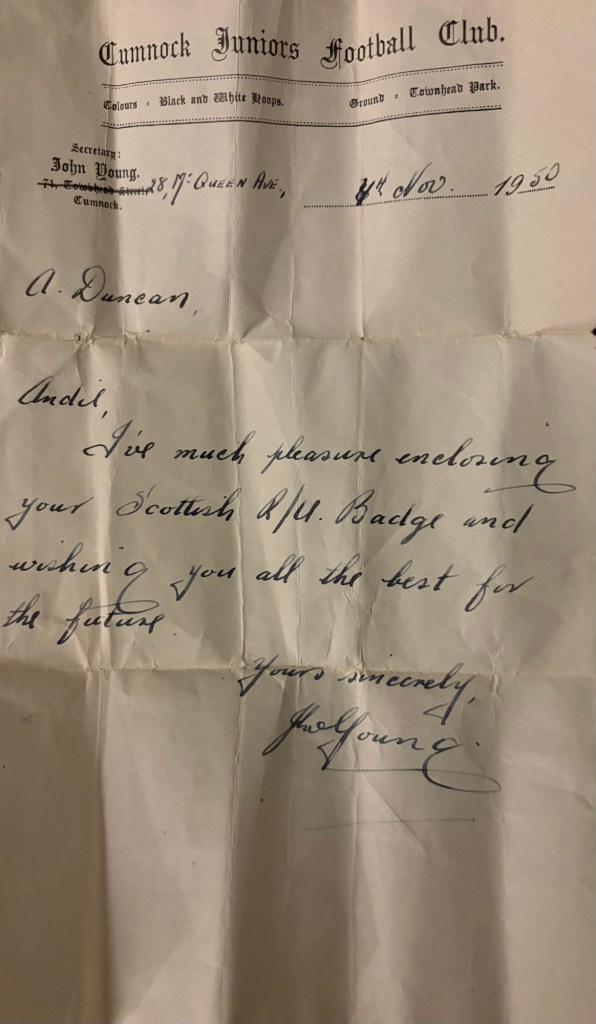 Cumnock Juniors Football Club.
Colours - Black and White Hoops. Ground - Townhead Park.
Secretary:
John Young.
71, Townhead Street 28, Mc Queen Ave.,
Cumnock.
Nov. 1950
A. Duncan,
I've much pleasure enclosing
your Scottish Badge and
wishing you all the best for
the future
Yours sincerely,
Jno Young.